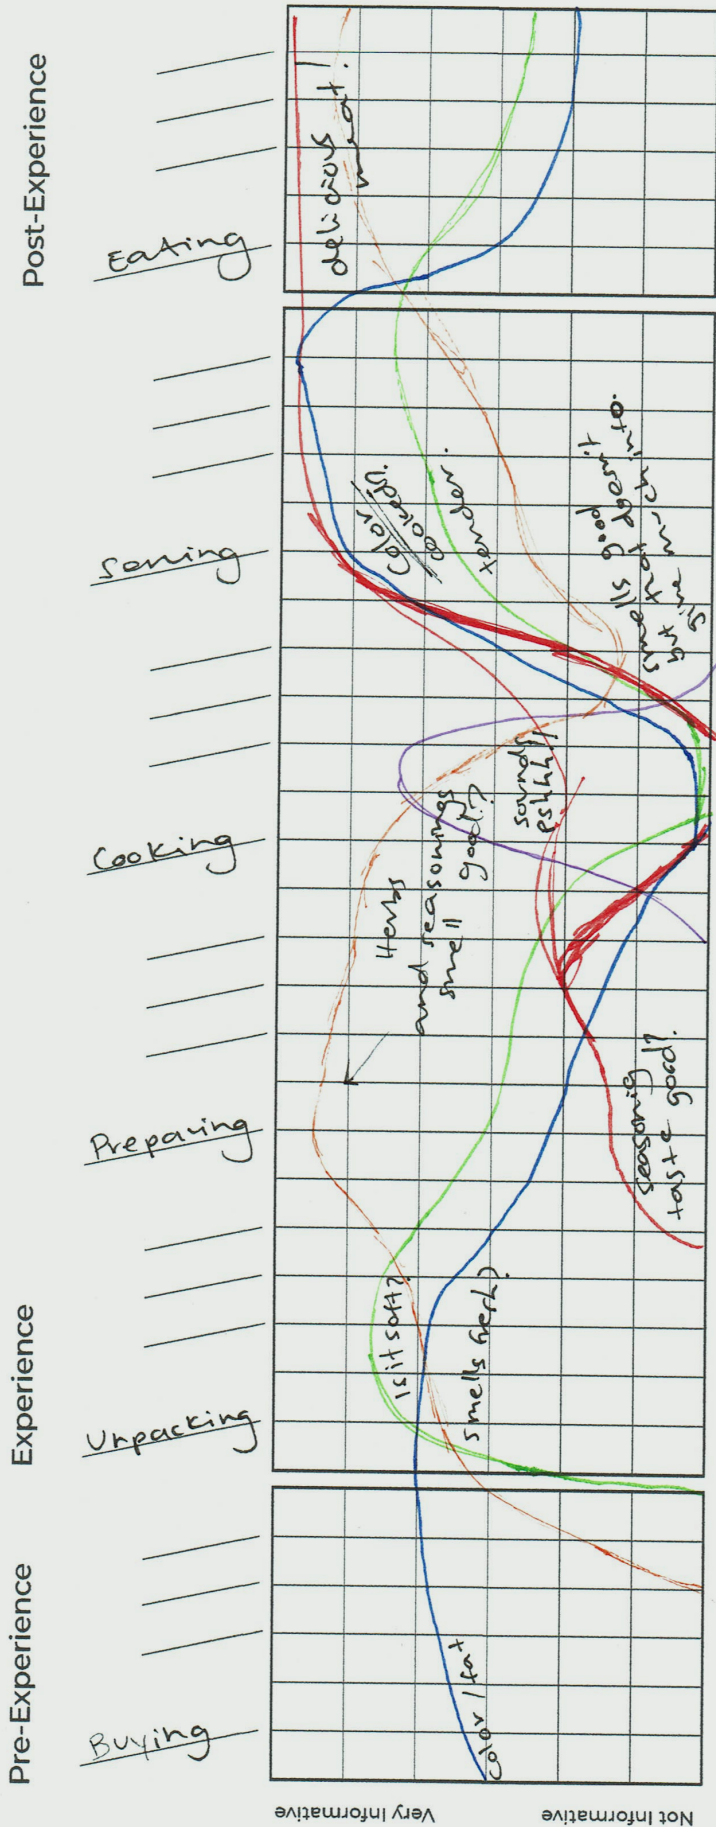 Pre-Experience
Experience
Post-Experience
Buying
Unpacking
Preparing
Cooking
Serving
Eating
Very Informative
Not Informative
color / fat
Is it soft?
smells fresh?
seasoning
taste good?
Herbs
and seasonings
smell
good?
sounds
pshhh!!
Color
cooked?
tender.
smells good
but that doesn't
give much info.
delicious
meat!